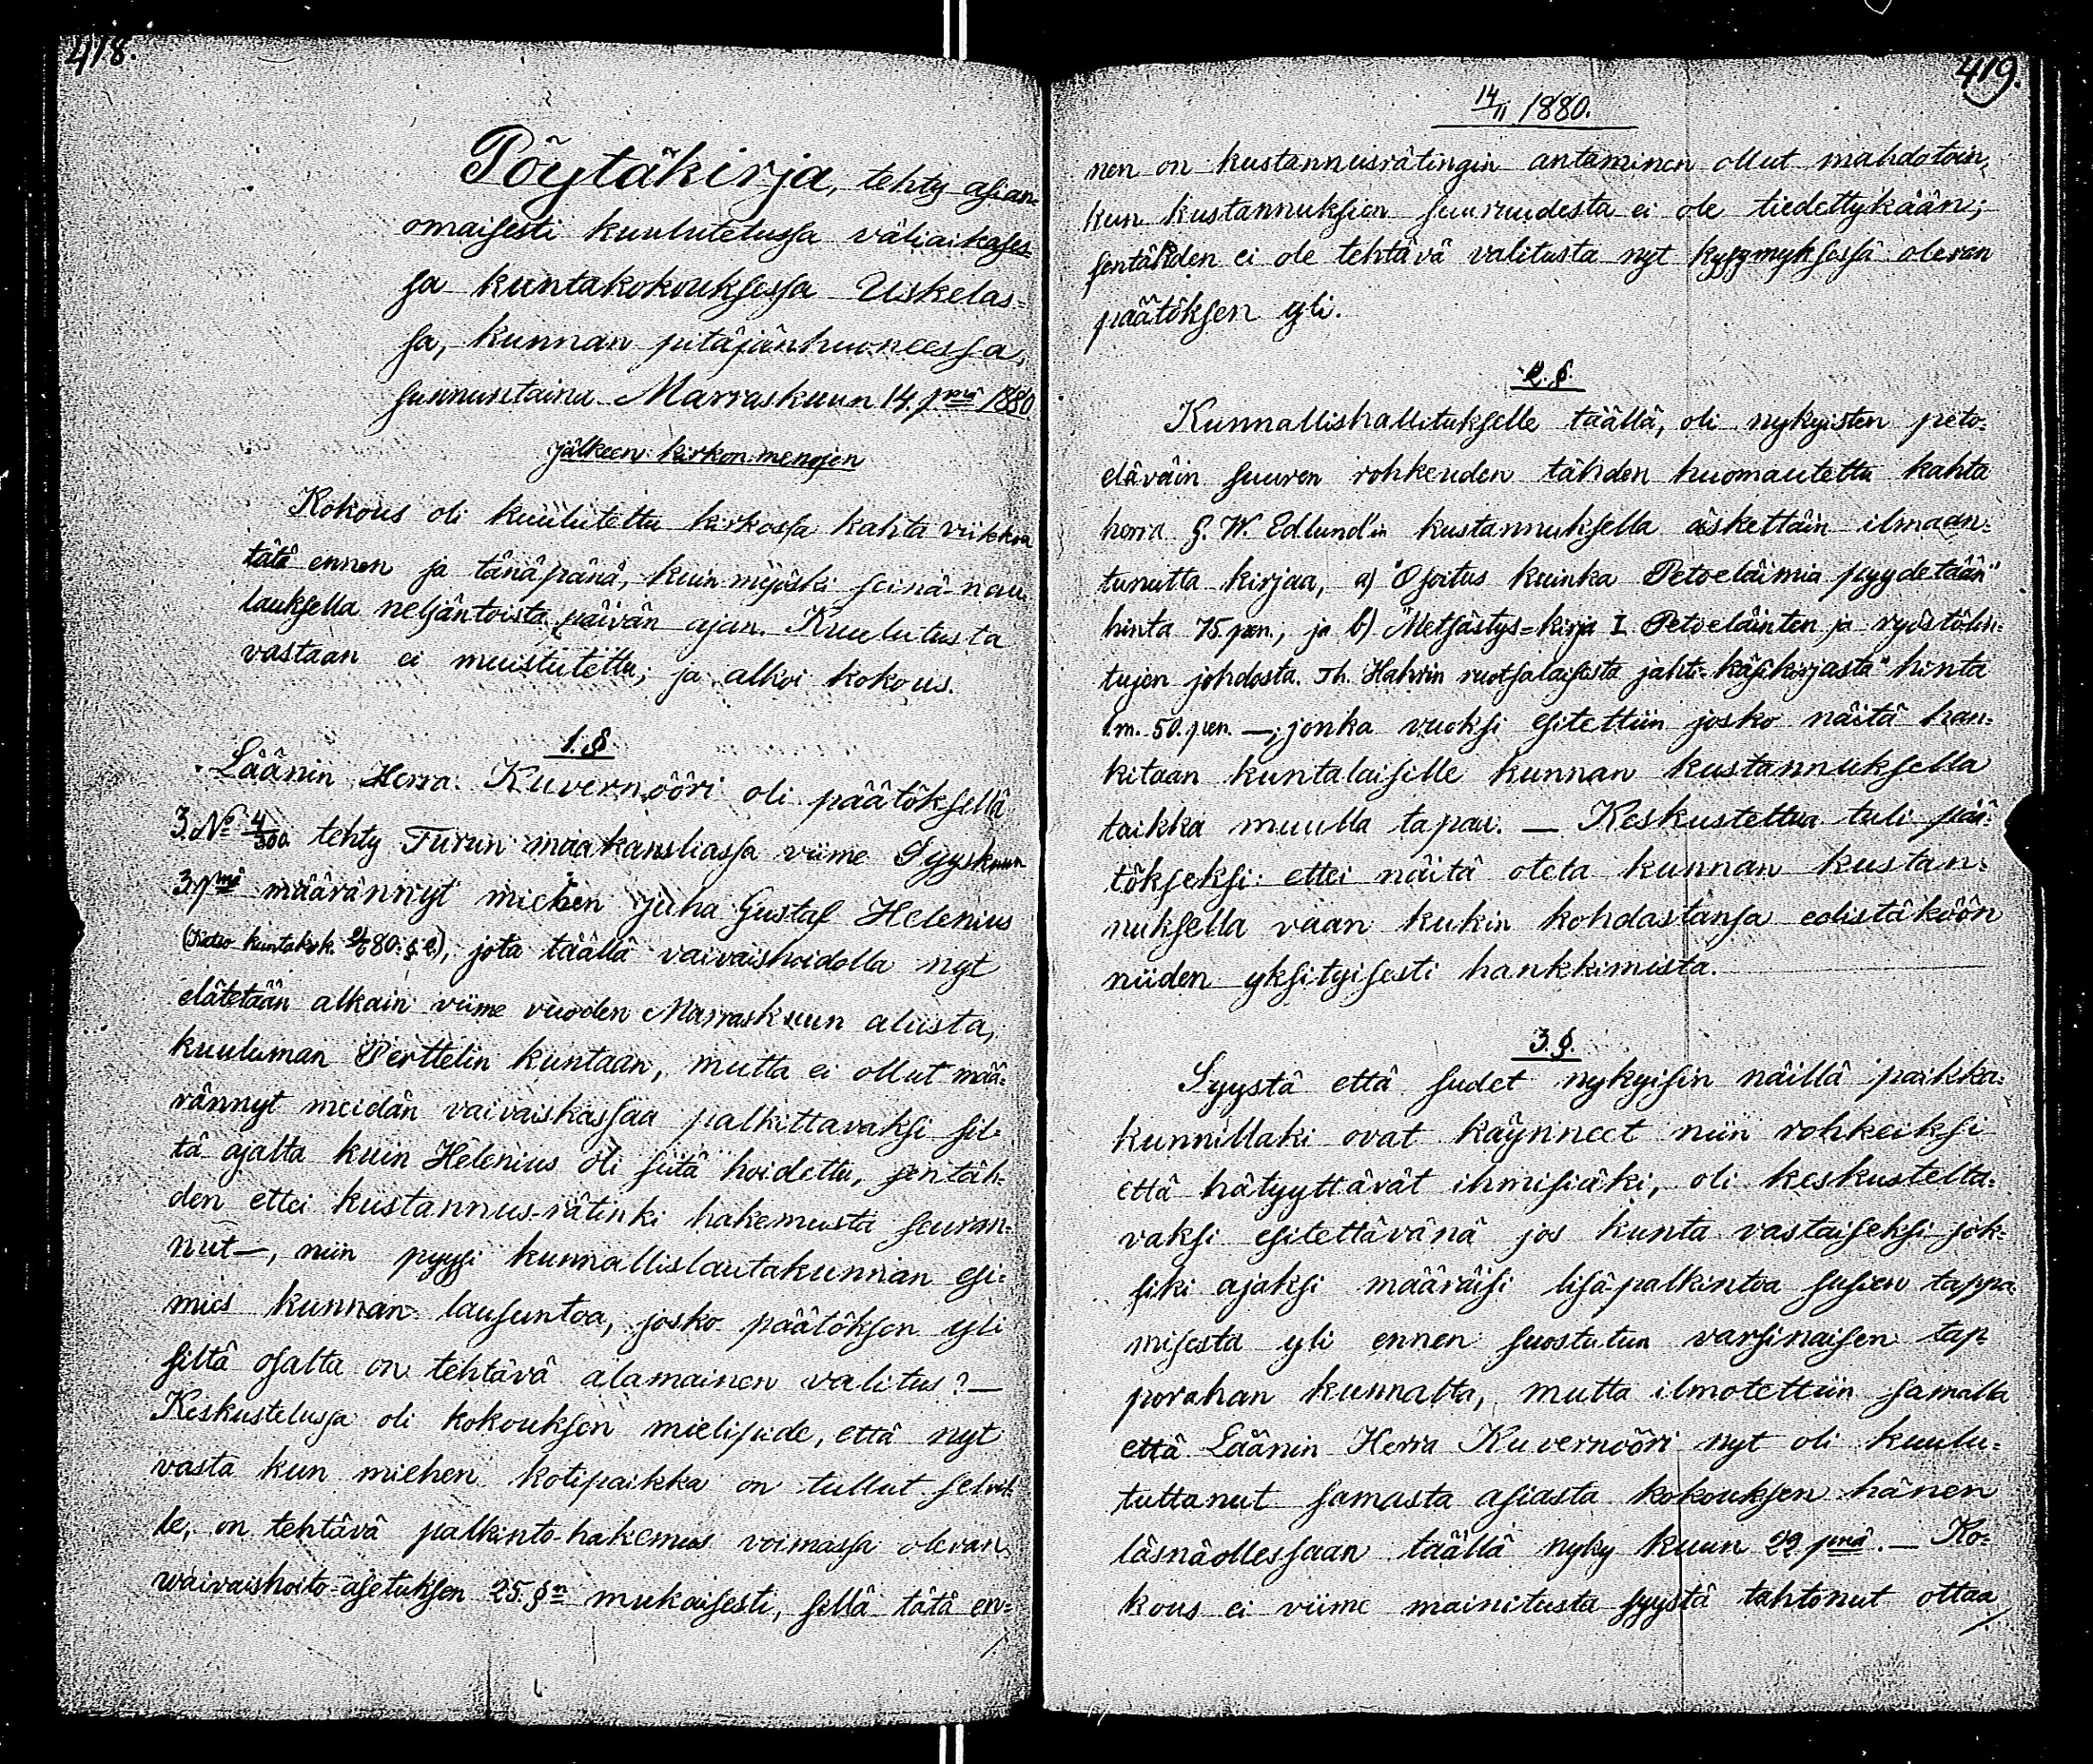 418.
Pöytäkirja, tehty asian-
omaisesti kuulutetussa väliaikases-
sa kuntakokouksessa Uskelas-
sa, kunnan pitäjänhuoneessa,
sunnuntaina Marraskuun 14. pnä 1880
jälkeen kirkon menojen
Kokous oli kuulutettu kirkossa kahta viikkoa
tätä ennen ja tänäpänä, kuin myöski seinä-nau-
lauksella neljäntoista päivän ajan. Kuulutusta
vastaan ei muistutettu; ja alkoi kokous.
1. §
Läänin Herra Kuvernööri oli päätöksellä
3. No 4/300 tehty Turun maakansliassa viime Syyskuun
3. pnä määrännyt miehen Juha Gustaf Helenius
(Katso kuntakok. 80. §. 2), jota täällä vaivaishoidolla nyt
elätetään alkain viime vuoden Marraskuun alusta,
kuuluman Perttelin kuntaan, mutta ei ollut mää-
rännyt meidän vaivaiskassaa palkittavaksi sil-
tä ajalta kuin Helenius oli siitä hoidettu, sentäh-
den ettei kustannus-rätinki hakemusta seuran-
nut —, niin pyysi kunnallislautakunnan esi-
mies kunnan lausuntoa, josko päätöksen yli
siltä osalta on tehtävä alamainen valitus? —
Keskustelussa oli kokouksen mielipide, että nyt
vasta kun miehen kotipaikka on tullut selvil-
le, on tehtävä palkinto-hakemus voimassa olevan
waivaishoito-asetuksen 25. §n mukaisesti, sillä tätä en-
419.
14/11 1880.
nen on kustannusrätingin antaminen ollut mahdotoin,
kun kustannuksien suuruudesta ei ole tiedettykään;
sentähden ei ole tehtävä valitusta nyt kysymyksessä olevan
päätöksen yli.
2. §.
Kunnallishallitukselle täällä, oli nykyisten peto-
eläväin suuren rohkeuden tähden huomautettu kahta
herra G. W. Edlund'in kustannuksella äskettäin ilmaan-
tunutta kirjaa, a) "Osoitus kuinka Petoeläimiä pyydetään"
hinta 75 pen., ja b) "Metsästys-kirja I Petoeläinten ja ryöstölin-
tujen johdosta. Th. Hahrin ruotsalaisesta jahti-käsikirjasta" hinta
1.m. 50. pen. —; jonka vuoksi esitettiin josko näitä han-
kitaan kuntalaisille kunnan kustannuksella
taikka muulla tapaa. — Keskusteltua tuli pää-
tökseksi: ettei näitä oteta kunnan kustan-
nuksella vaan kukin kohdastansa edistäköön
niiden yksityisesti hankkimista.
3. §.
Syystä että sudet nykyisin näillä paikka-
kunnillaki ovat käynneet niin rohkeiksi
että hätyyttävät ihmisiäki, oli keskustelta-
vaksi esitettävänä jos kunta vastaiseksi jok-
siki ajaksi määräisi lisä-palkintoa susien tappa-
misesta yli ennen suostutun varsinaisen tap-
porahan kunnalta, mutta ilmotettiin samalla
että Läänin Herra Kuvernööri nyt oli kuulu-
tuttanut samasta asiasta kokouksen hänen
läsnäollessaan täällä nyky kuun 22 pnä. — Ko-
kous ei viime mainitusta syystä tahtonut ottaa